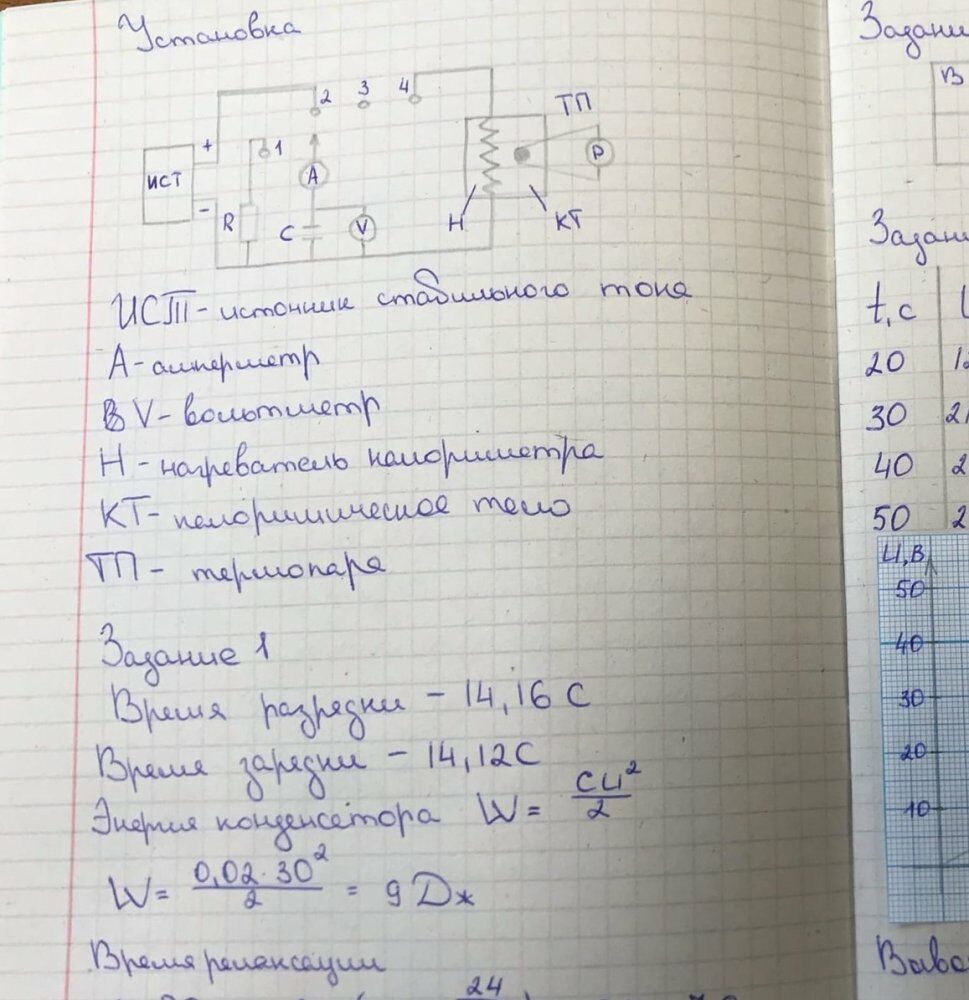 Установка
2 3 4
ТП
+ 1
ИСТ
А
Р
-
R C V
Н КТ
ИСТ - источник стабильного тока
А - амперметр
V - вольтметр
Н - нагреватель калориметра
КТ - калоримическое тело
ТП - термопара
Задание 1
Время разрядки - 14,16 С
Время зарядки - 14,12 С
Энергия конденсатора W = CU²/2
W = 0,02·30²/2 = 9 Дж
Время релаксации
24
Задани
В
Задани
t,c
20
30
40
50
U,В
50
40
30
20
10
Выво